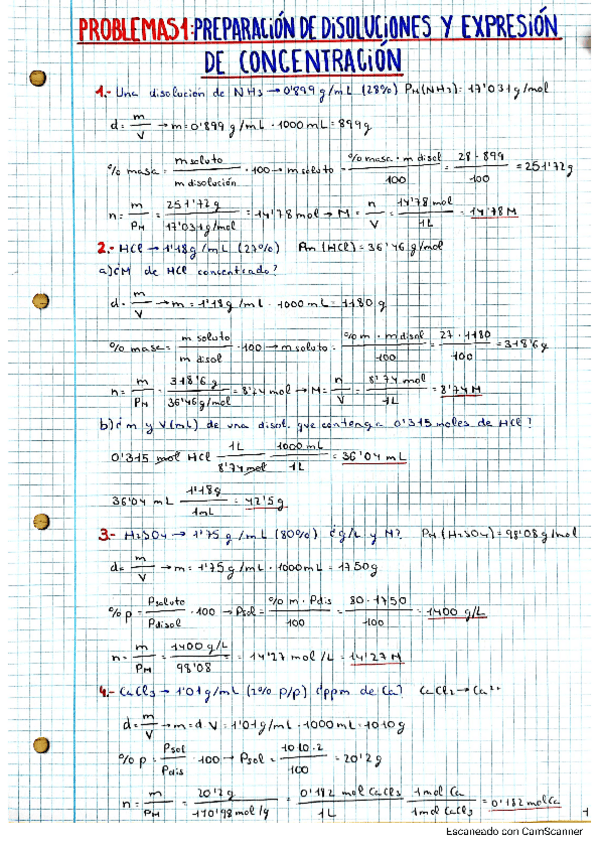 PROBLEMAS 1: PREPARACIÓN DE DISOLUCIONES Y EXPRESIÓN
DE CONCENTRACIÓN
1.- Una disolución de NH3 → 0'899 g/mL (28%) PM (NH3): 17'031 g/mol
d = m/V → m = 0'899 g/mL · 1000 mL = 899g
% masa = m soluto / m disolución · 100 → m soluto = % masa · m disol / 100 = 28 · 899 / 100 = 251'72 g
n = m/PM = 251'72 g / 17'031 g/mol = 14'78 mol → M = n/V = 14'78 mol / 1L = 14'78 M
2.- HCl → 1'18 g/mL (27%) Pm (HCl) = 36'46 g/mol
a) ¿M de HCl concentrado?
d = m/V → m = 1'18 g/mL · 1000 mL = 1180 g
% masa = m soluto / m disol · 100 → m soluto = % m · m disol / 100 = 27 · 1180 / 100 = 318'6 g
n = m/PM = 318'6 g / 36'46 g/mol = 8'74 mol → M = n/V = 8'74 mol / 1L = 8'74 M
b) ¿m y V (mL) de una disol. que contenga 0'315 moles de HCl?
0'315 mol HCl 1L / 8'74 mol 1000 mL / 1L = 36'04 mL
36'04 mL 1'18g / 1mL = 42'5 g
3.- H2SO4 → 1'75 g/mL (80%) ¿g/L y M? PM (H2SO4) = 98'08 g/mol
d = m/V → m = 1'75 g/mL · 1000 mL = 1750g
% p = Psoluto / Pdisol · 100 → Psol = % m · Pdis / 100 = 80 · 1750 / 100 = 1400 g/L
n = m/PM = 1400 g/L / 98'08 = 14'27 mol/L = 14'27 M
4.- CaCl3 → 1'01 g/mL (2% p/p) ¿ppm de Ca? CaCl2 → Ca2+
d = m/V → m = d · V = 1'01 g/mL · 1000 mL = 1010g
% p = Psol / Pdis · 100 → Psol = 1010 · 2 / 100 = 20'2 g
n = m/PM = 20'2 g / 110'98 mol/g = 0'182 mol CaCl2 / 1L 1 mol Ca / 1 mol CaCl2 = 0'182 mol Ca
1
Escaneado con CamScanner